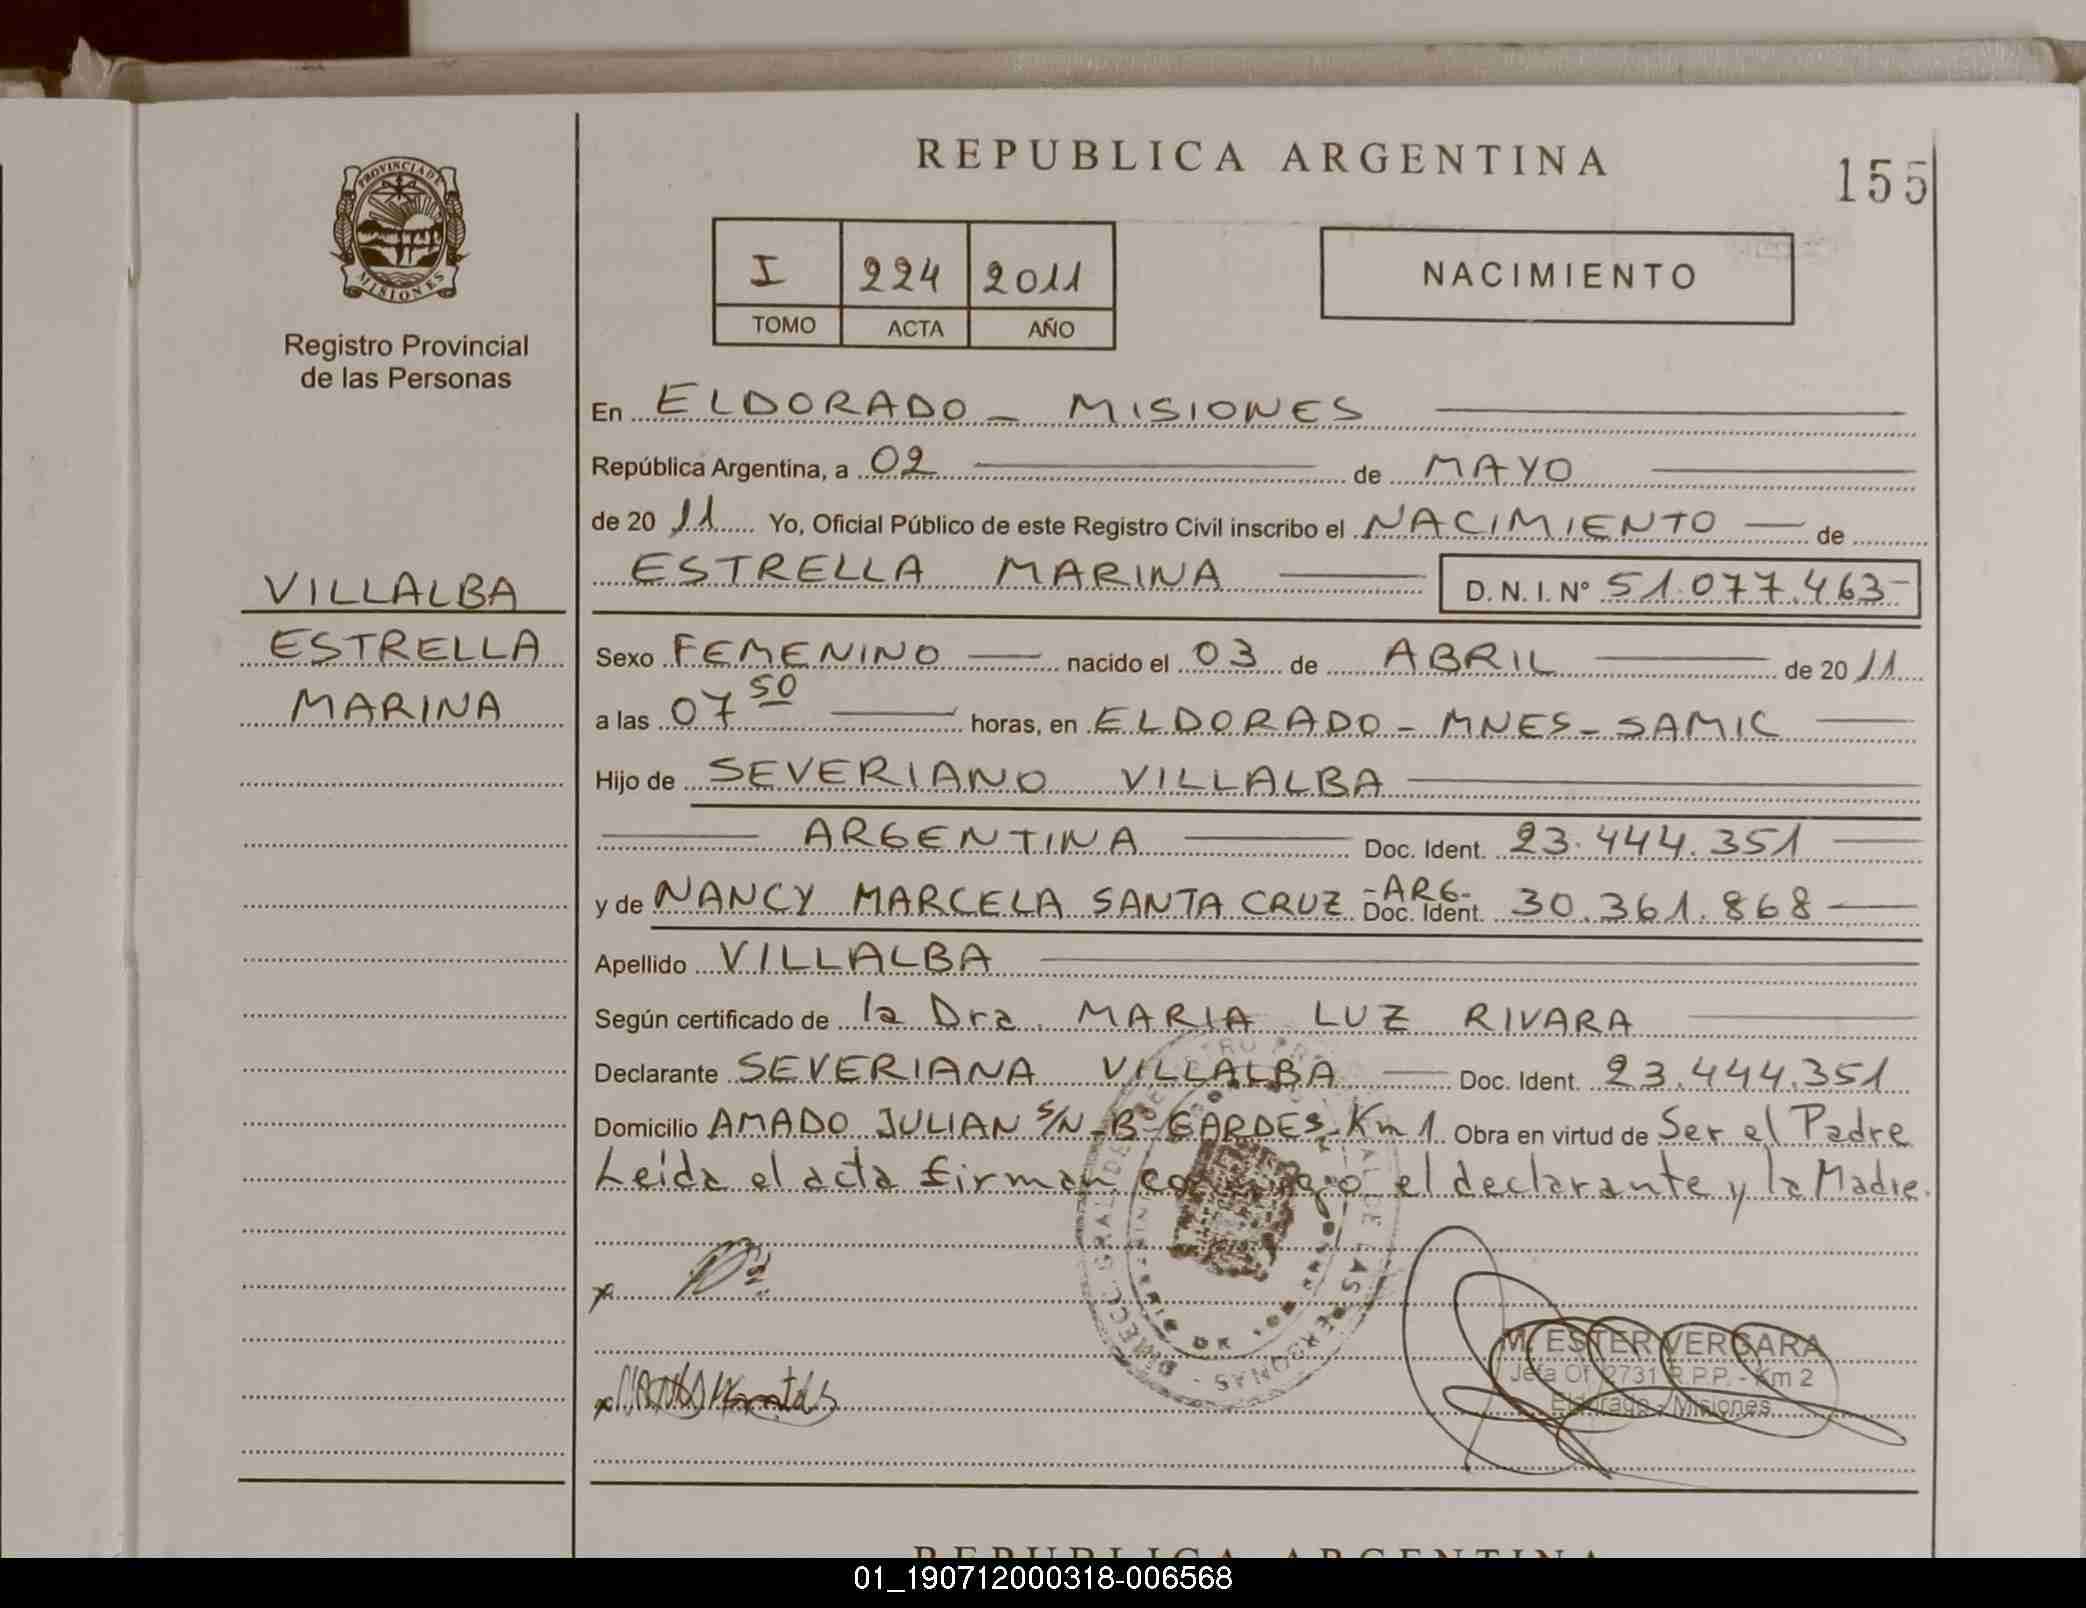 REPUBLICA ARGENTINA
155
PROVINCIA DE
MISIONES
Registro Provincial
de las Personas
I 224 2011
TOMO ACTA AÑO
NACIMIENTO
En ELDORADO - MISIONES
República Argentina, a 02 de MAYO
de 2011 Yo, Oficial Público de este Registro Civil inscribo el NACIMIENTO de
ESTRELLA MARINA D. N. I. Nº 51.077.463-
VILLALBA
ESTRELLA
MARINA
Sexo FEMENINO nacido el 03 de ABRIL de 2011
a las 07 50 horas, en ELDORADO - MNES - SAMIC
Hijo de SEVERIANO VILLALBA
ARGENTINA Doc. Ident. 23.444.351
y de NANCY MARCELA SANTA CRUZ -ARG- Doc. Ident. 30.361.868
Apellido VILLALBA
Según certificado de la Dra. MARIA LUZ RIVARA
Declarante SEVERIANA VILLALBA Doc. Ident. 23.444.351
Domicilio AMADO JULIAN S/N - Bº GARDES - Km 1 Obra en virtud de Ser el Padre
Leida el acta firman conmigo el declarante y la Madre.
M. ESTER VERGARA
Jefa Of. 2731 R.P.P. - Km 2
Eldorado - Misiones
REPUBLICA ARGENTINA
01_190712000318-006568